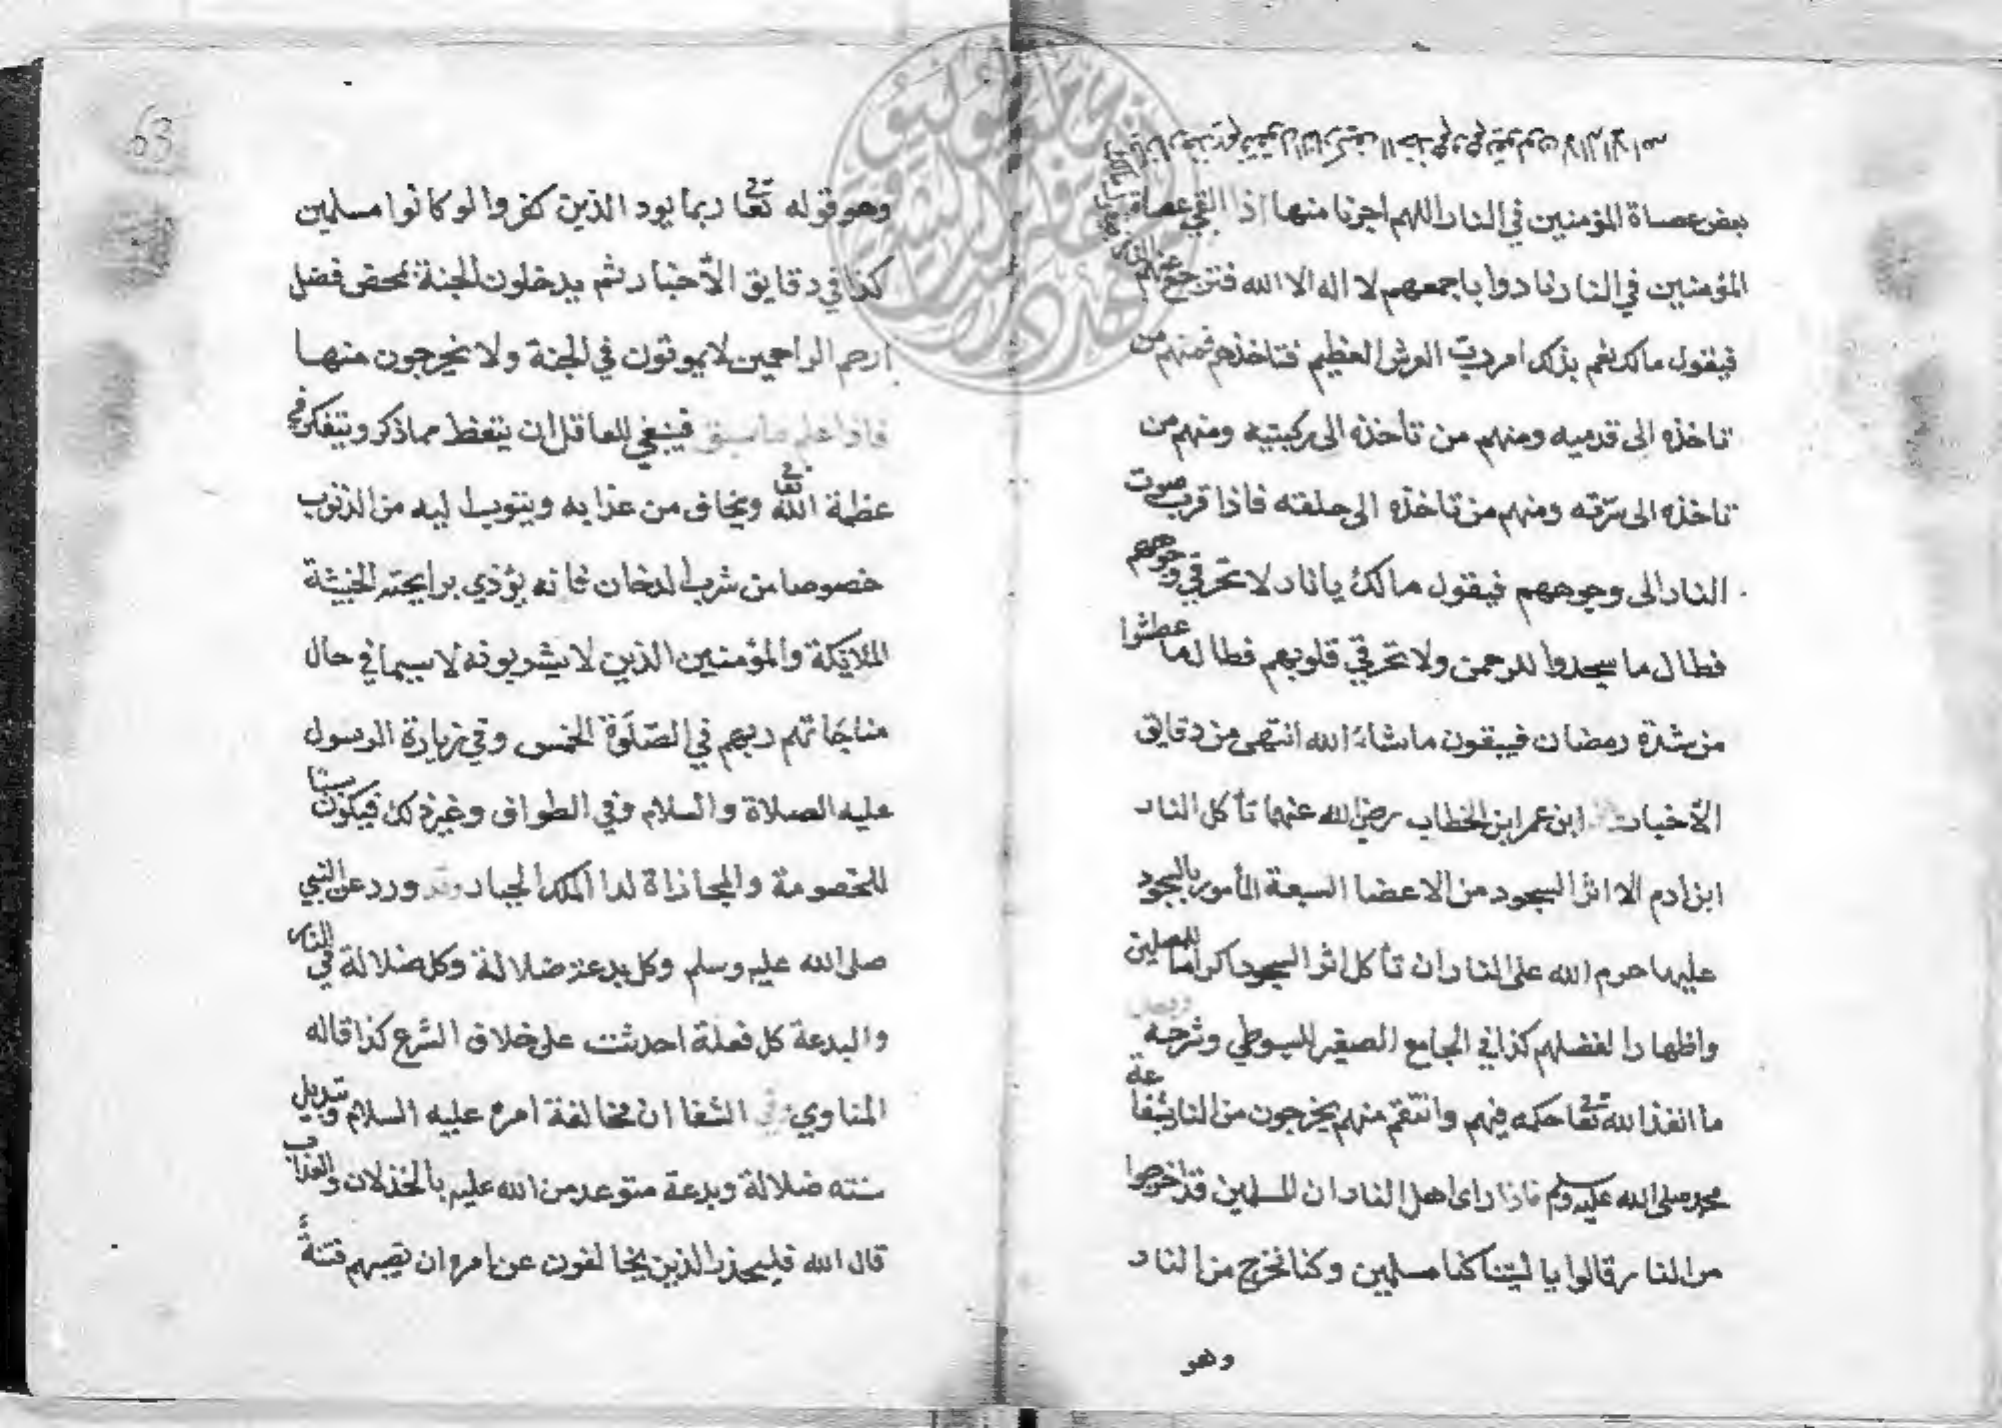 بعض عصاة المؤمنين في النار اللهم اجرنا منها اذا القي عصاة
المؤمنين في النار نادوا باجمعهم لا اله الا الله فترجع عنهم النار
فيقول مالك نعم بذلك امر رب العرش العظيم فتاخذهم فمنهم من
تاخذه الى قدميه ومنهم من تأخذه الى ركبتيه ومنهم من
تاخذه الى سرّته ومنهم من تاخذه الى حلقه فاذا قربت
النار الى وجوههم فيقول مالك يا نار لا تحرقي وجوههم
فطال ما سجدوا للرحمن ولا تحرقي قلوبهم فطال ما عطشوا
من شدة رمضان فيبقون ما شاء الله انتهى من دقايق
الأخبار ابن عمر ابن الخطاب رضي الله عنهما تأكل النار
ابن ادم الا اثر السجود من الاعضا السبعة المأمور بالسجود
عليها حرم الله على النار ان تأكل اثر السجود اكراما للمصلين
واظهارا لفضلهم كذا في الجامع الصغير للسيوطي وشرحه
ما انفذ الله تعا حكمه فيهم وانتقم منهم يخرجون من النار بشفاعة
محمد صلى الله عليه وسلم فاذا راى اهل النار ان المسلمين قد اخرجوا
من النار قالوا يا ليتنا كنا مسلمين وكنا نخرج من النار
وهو
63
وهو قوله تعا ربما يود الذين كفروا لو كانوا مسلمين
كذا في دقايق الأخبار ثم يدخلون الجنة بمحض فضل
ارحم الراحمين لا يموتون في الجنة ولا يخرجون منها
فاذا علم ما سبق فينبغي للعاقل ان يتعظ مما ذكر ويتفكر في
عظمة الله تعا ويخاف من عذابه ويتوب اليه من الذنوب
خصوصا من شرب الدخان فانه يؤذي برايحته الخبيثة
الملائكة والمؤمنين الذين لا يشربونه لا سيما في حال
مناجاتهم ربهم في الصّلوة الخمس وفي زيارة الرسول
عليه الصلاة والسلام وفي الطواف وغير ذلك فيكون سببا
للخصومة والمجازاة لدا الملك الجبار وقد ورد عن النبي
صلى الله عليه وسلم وكل بدعة ضلالة وكل ضلالة في النار
والبدعة كل فعلة احدثت على خلاف الشرع كذا قاله
المناوي وفي الشفا ان مخالفة امره عليه السلام وتبديل
سنته ضلالة وبدعة متوعد من الله عليه بالخذلان والعذاب
قال الله فليحذر الذين يخالفون عن امره ان تصيبهم فتنةٌ